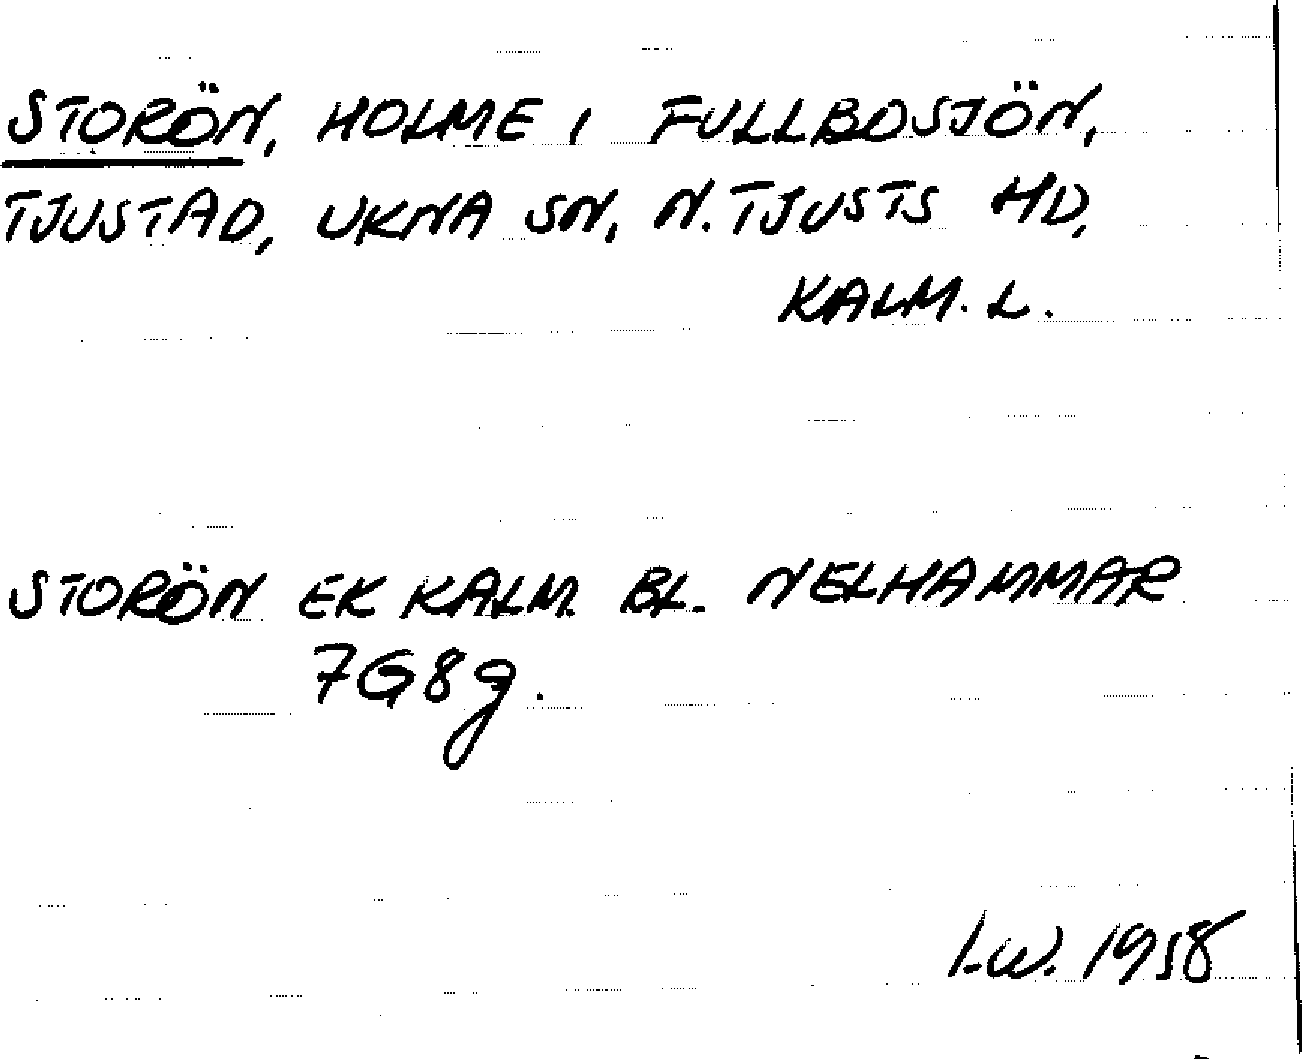 STORÖN, HOLME I FULLBOSJÖN,
TJUSTAD, UKNA SN, N. TJUSTS HD,
KALM. L.
STORÖN EK KALM. BL. NELHAMMAR
7G8g.
I.W. 1958